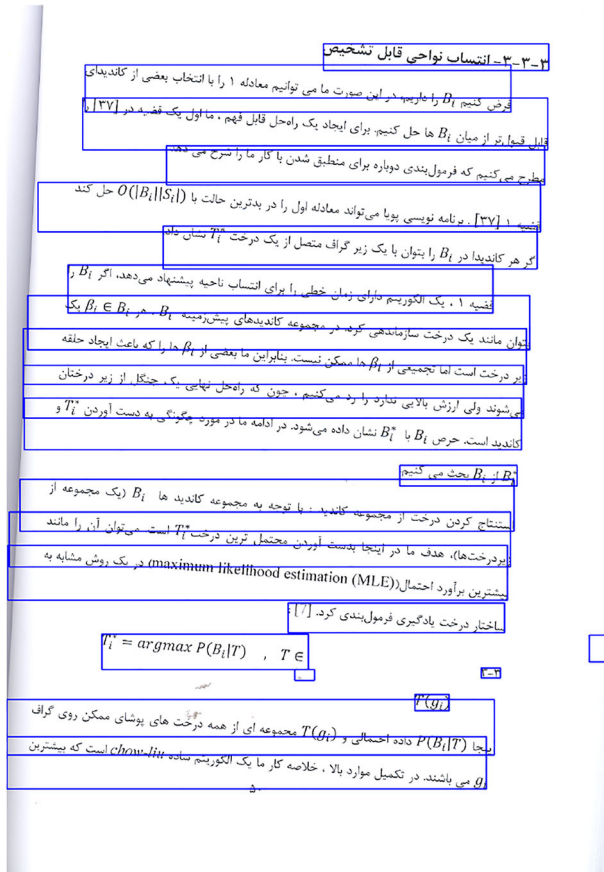 ۳-۳-۳- انتساب نواحی قابل تشخیص
فرض کنیم Bᵢ را داریم، در این صورت ما می توانیم معادله ۱ را با انتخاب بعضی از کاندیدای
قابل قبول‌تر از میان Bᵢ ها حل کنیم. برای ایجاد یک راه‌حل قابل فهم ، ما اول یک قضیه در [۳۷] را
مطرح می‌کنیم که فرمول‌بندی دوباره برای منطبق شدن با کار ما را شرح می دهد.
قضیه ۱ [۳۷] . برنامه نویسی پویا می‌تواند معادله اول را در بدترین حالت با O(|Bᵢ||Sᵢ|) حل کند
گر هر کاندیدا در Bᵢ را بتوان با یک زیر گراف متصل از یک درخت Tᵢ* نشان داد.
قضیه ۱ ، یک الگوریتم دارای زمان خطی را برای انتساب ناحیه پیشنهاد می‌دهد، اگر Bᵢ را
بتوان مانند یک درخت سازماندهی کرد. در مجموعه کاندیدهای پیش‌زمینه Bᵢ ، هر βᵢ ∈ Bᵢ یک
زیر درخت است اما تجمیعی از βᵢ ها ممکن نیست. بنابراین ما بعضی از βᵢ ها را که باعث ایجاد حلقه
می‌شوند ولی ارزش بالایی ندارد را رد می‌کنیم ، چون که راه‌حل نهایی یک جنگل از زیر درختان
کاندید است. حرص Bᵢ با Bᵢ* نشان داده می‌شود. در ادامه ما در مورد چگونگی به دست آوردن Tᵢ* و
Bᵢ* از Bᵢ بحث می کنیم
ستنتاج کردن درخت از مجموعه کاندید : با توجه به مجموعه کاندید ها Bᵢ (یک مجموعه از
زیردرخت‌ها)، هدف ما در اینجا بدست آوردن محتمل ترین درخت Tᵢ* است. می‌توان آن را مانند
بیشترین برآورد احتمال((MLE) maximum likelihood estimation) در یک روش مشابه به
ساختار درخت یادگیری فرمول‌بندی کرد. [7] :
Tᵢ* = argmax P(Bᵢ|T) , T ∈
۳-۲
T(gᵢ)
ینجا P(Bᵢ|T) داده احتمالی و T(gᵢ) مجموعه ای از همه درخت های پوشای ممکن روی گراف
gᵢ می باشند. در تکمیل موارد بالا ، خلاصه کار ما یک الگوریتم ساده chow-liu است که بیشترین
۵۰